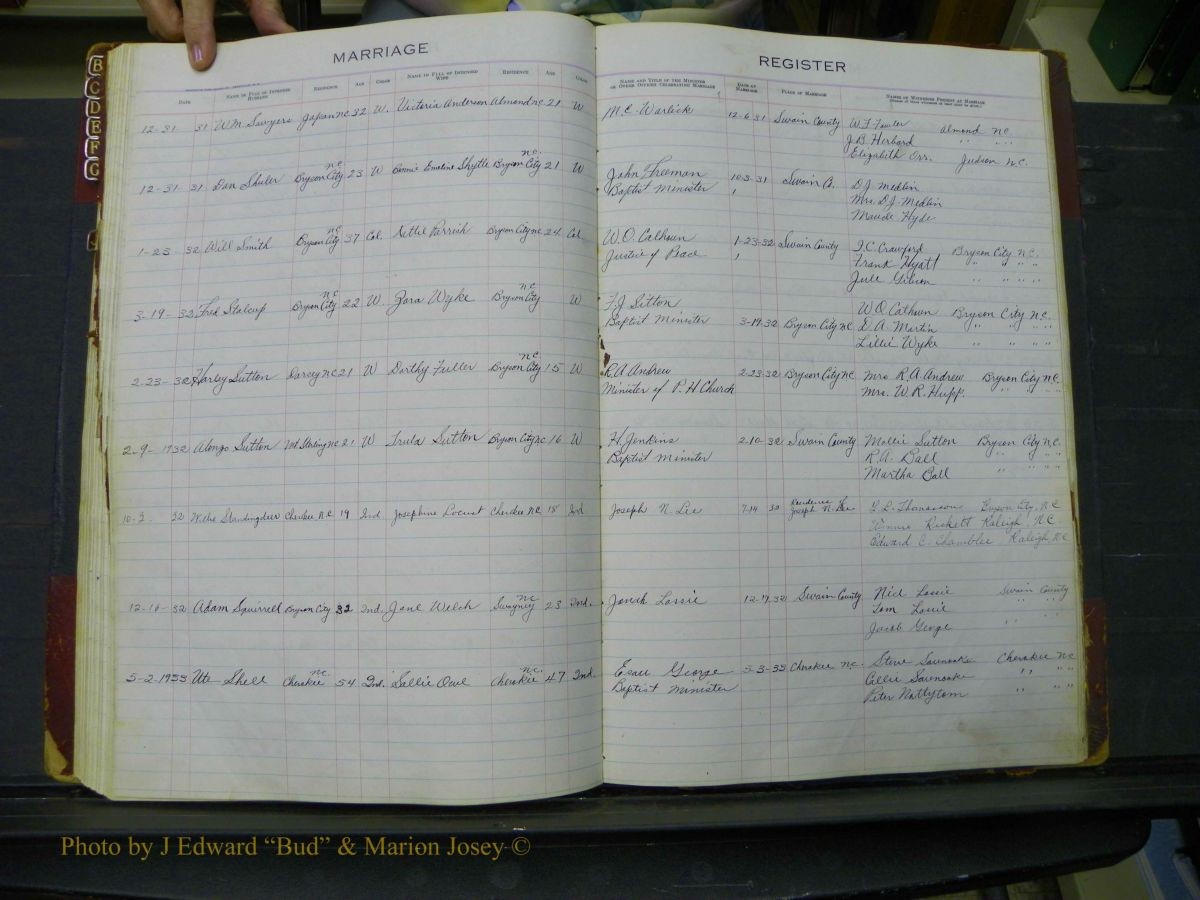 B
C
D
E
F
G
J
MARRIAGE
REGISTER
DATE NAME IN FULL OF INTENDED HUSBAND RESIDENCE AGE COLOR NAME IN FULL OF INTENDED WIFE RESIDENCE AGE COLOR
NAME AND TITLE OF THE MINISTER OR OTHER OFFICER CELEBRATING MARRIAGE DATE OF MARRIAGE PLACE OF MARRIAGE NAMES OF WITNESSES PRESENT AT MARRIAGE
12-31 31 W.M. Sawyers Japan NC 32 W. Victoria Anderson Almond NC 21 W
M.C. Warlick 12-6 31 Swain County W.T. Fowler Almond NC.
J.B. Herbard " " "
Elizabeth Orr. Judson N.C.
12-31-31 Dan Shuler Bryson City NC 23 W Annie Emaline Shytle Bryson City N.C. 21 W
John Freeman 10-3-31 Swain Co. D.J. Medlin
Baptist Minister Mrs. D.J. Medlin
Maude Hyde
1-23-32 Will Smith Bryson City NC 37 Col. Nettie Parrish Bryson City NC 24 Col.
W.O. Calhoun 1-23-32 Swain County T.C. Crawford Bryson City N.C.
Justice of Peace Frank Hyatt " " " "
Jule Gibson " " " "
3-19-32 Fred Stalcup Bryson City NC 22 W Zara Wyke Bryson City NC W
F.J. Sitton W.O. Calhoun Bryson City N.C.
Baptist Minister 3-19-32 Bryson City N.C. D.A. Martin " " " "
Lillie Wyke " " " "
2-23-32 Harley Sutton Dorsey NC 21 W Dorthy Fuller Bryson City N.C. 15 W
R.A. Andrew 2-23-32 Bryson City N.C. Mrs R.A. Andrew Bryson City N.C.
Minister of P.H. Church Mrs. W.R. Hupp. " " " "
2-9-1932 Alonzo Sutton Mt Sterling NC 21 W Trula Sutton Bryson City NC 16 W
H. Jenkins 2-10-32 Swain County Mollie Sutton Bryson City N.C.
Baptist Minister R.A. Ball " " " "
Martha Ball " " " "
10-3 32 Willie Standingdeer Cherokee N.C 19 Ind Josephine Locust Cherokee NC 18 Ind
Joseph N. Lee 7-14 30 Residence of Joseph N. Lee Thomasson Bryson City, N.C
Winnie Rickett Raleigh, N.C
Edward C. Chamblee Raleigh N.C
12-16-32 Adam Squirrell Bryson City 32 Ind. Jane Welch Swayney NC 23 Ind.
Jonah Lossie 12-17 32 Swain County Nick Lossie Swain County
Tom Lossie " "
Jacob George " "
5-2-1933 Ute Shell Cherokee N.C. 54 Ind. Sallie Owl Cherokee N.C. 47 Ind
George 5-3-33 Cherokee N.C. Steve Saunooke Cherokee N.C
Baptist Minister Callie Saunooke " " "
Peter Nottytom " " "
Photo by J Edward “Bud” & Marion Josey ©